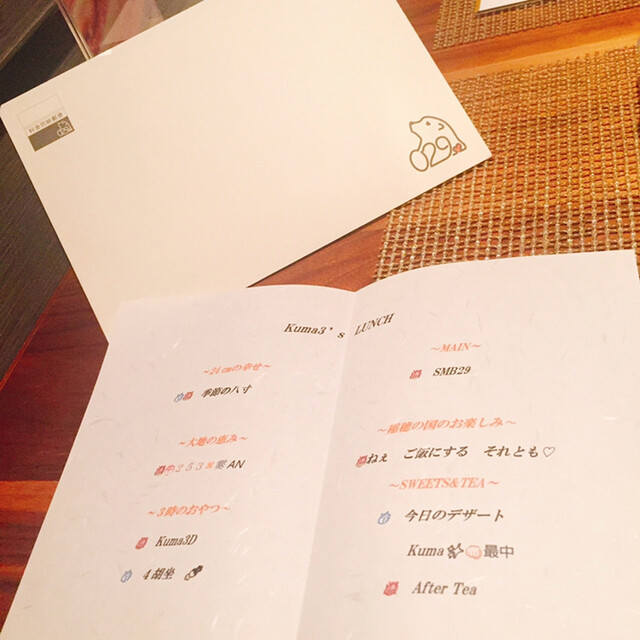 029
Kuma3's LUNCH
～24㎝の幸せ～
季節の八寸
～大地の恵み～
253
AN
～3時のおやつ～
Kuma3D
4胡坐
～MAIN～
SMB29
～稲穂の国のお楽しみ～
ねぇ ご飯にする それとも♡
～SWEETS&TEA～
今日のデザート
Kuma 最中
After Tea